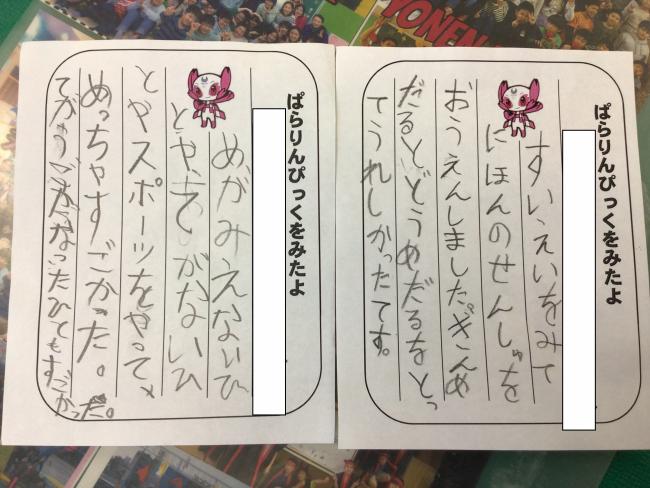 ぱらりんぴっくをみたよ
すいえいをみて
にほんのせんしゅを
おうえんしました。ぎんめ
だるとどうめだるをとっ
てうれしかったてす。
ぱらりんぴっくをみたよ
めがみえないひ
とや、てがないひ
とやスポーツをやって、
めっちゃすごかった。
ひてもすごかっ
だ。